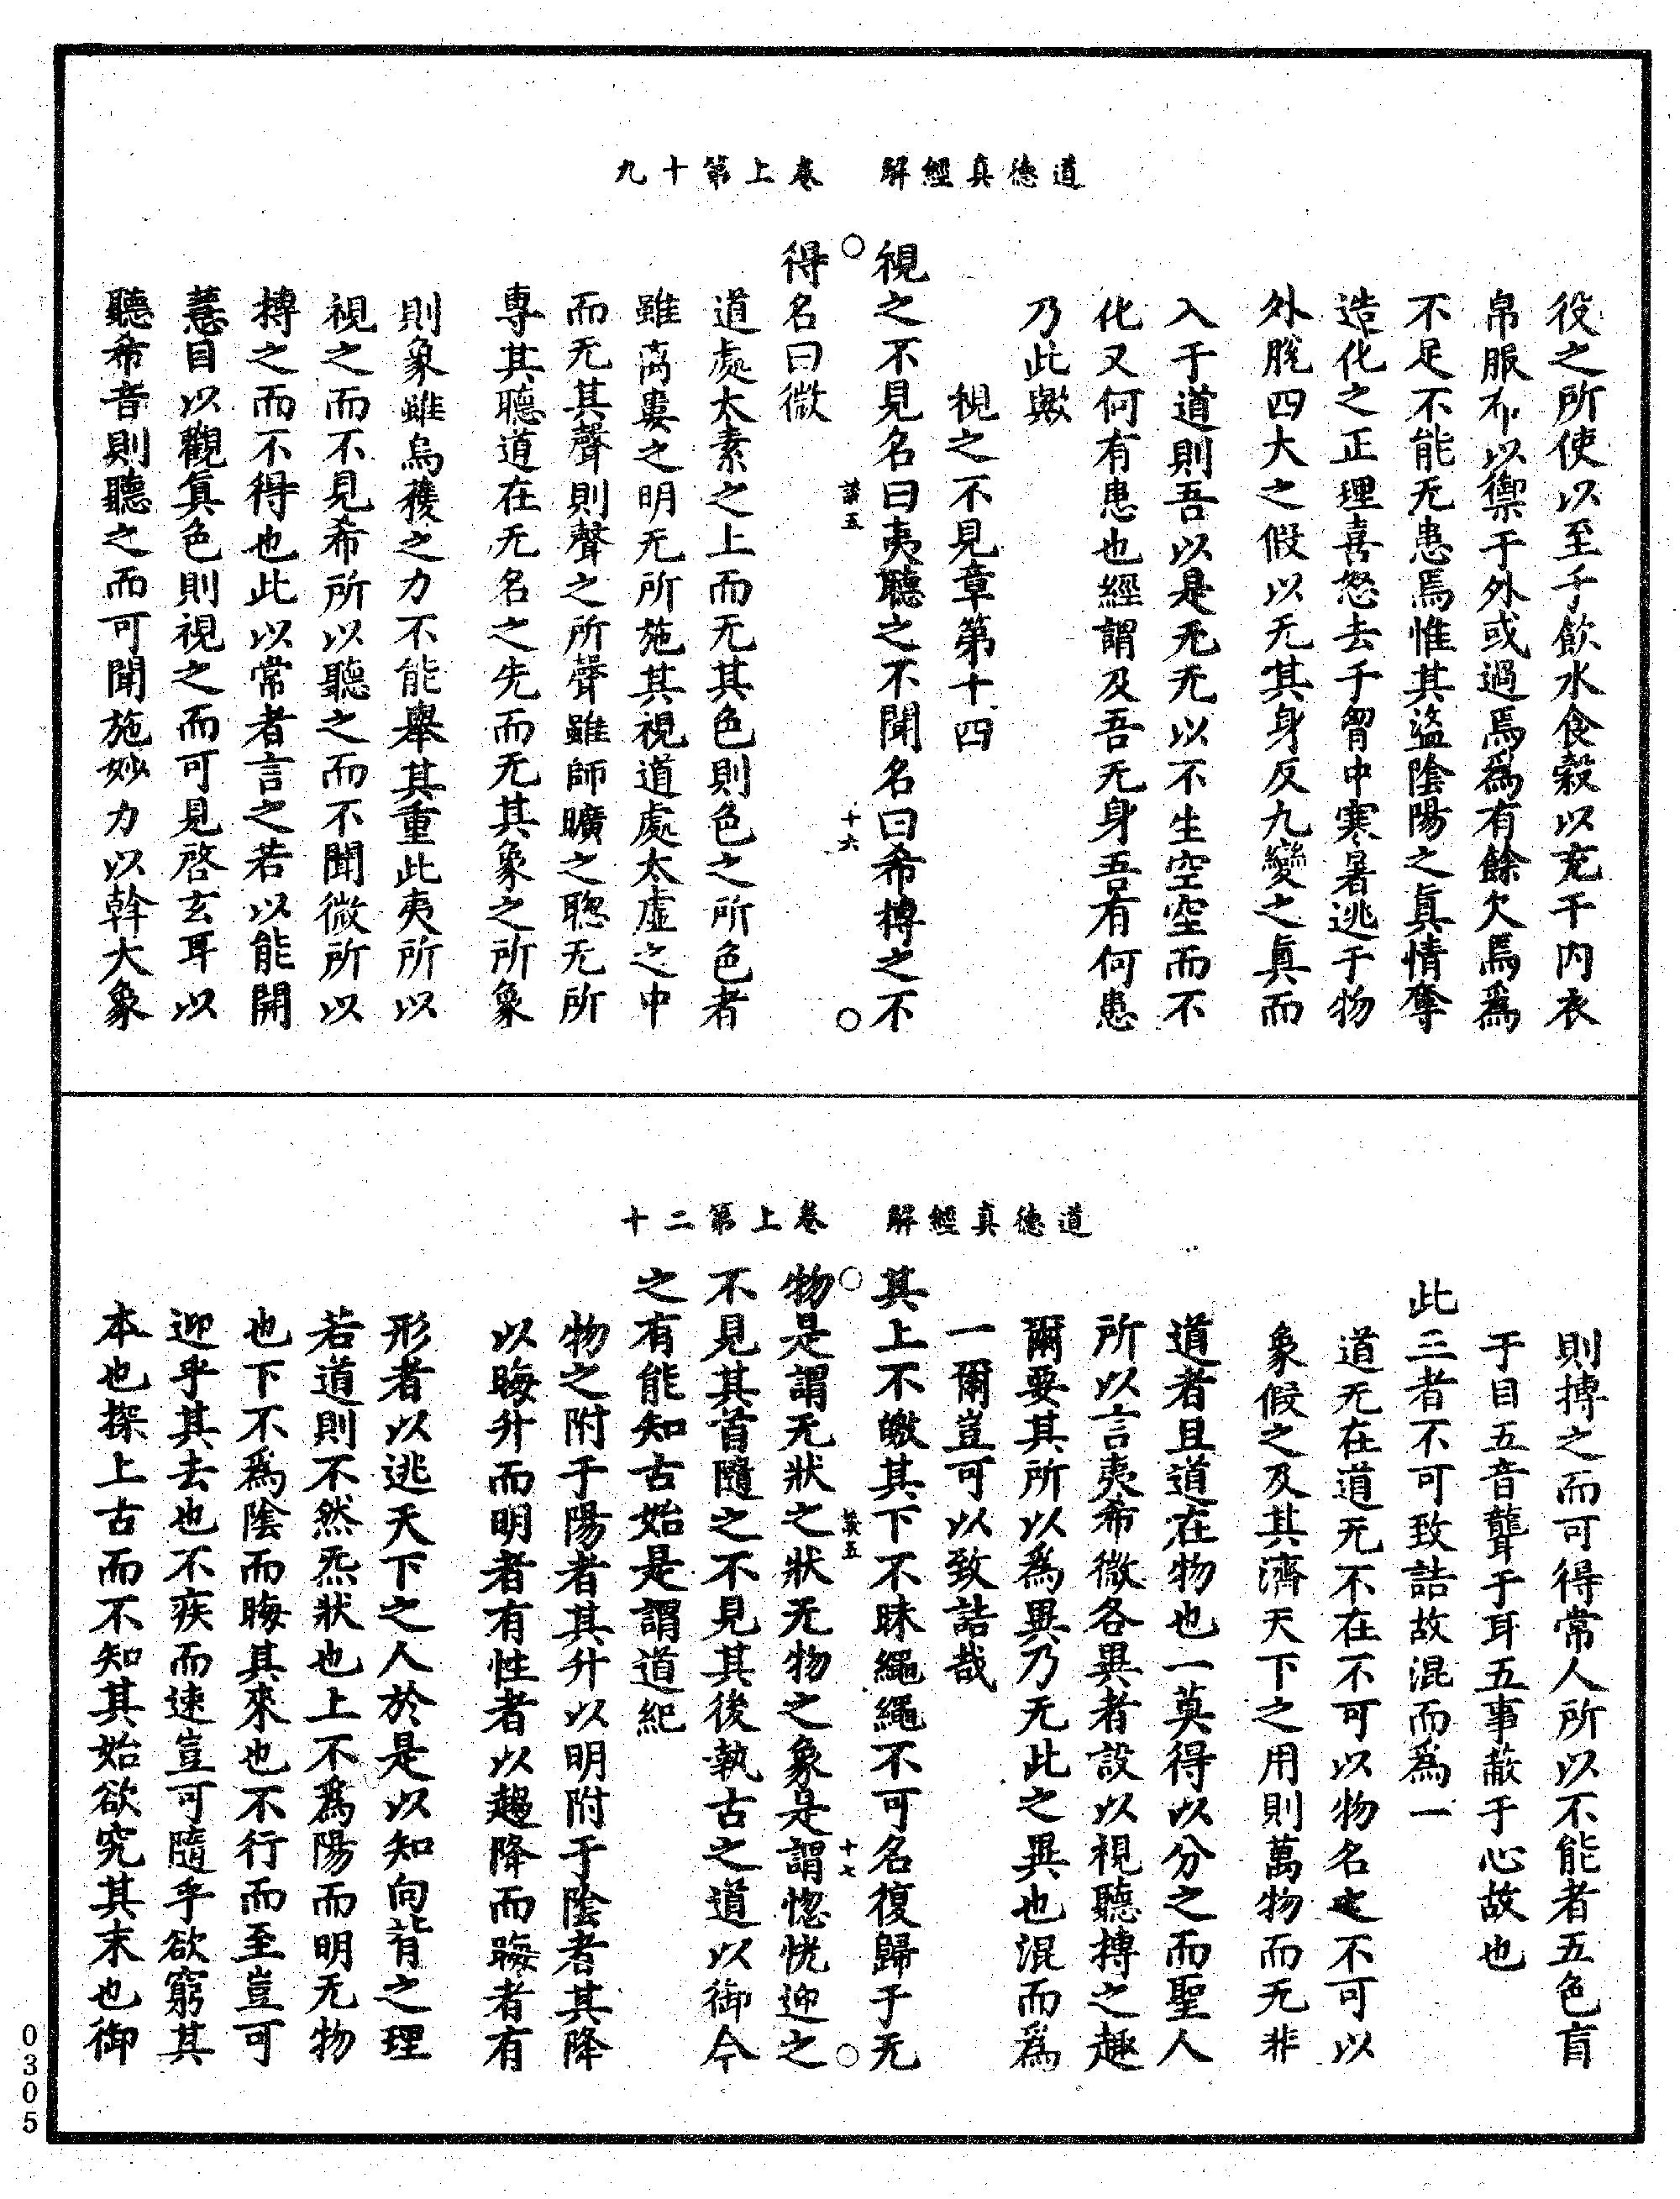 道德真經解　卷上第十九
役之所使以至于飲水食穀以充于内衣
帛服布以禦于外或過焉爲有餘欠焉爲
不足不能无患焉惟其盜陰陽之真情奪
造化之正理喜怒去于胷中寒暑逃于物
外脫四大之假以无其身反九變之真而
入于道則吾以是无无以不生空空而不
化又何有患也經謂及吾无身吾有何患
乃此歟
視之不見章第十四
視之不見名曰夷聽之不聞名曰希摶之不
得名曰微
道處太素之上而无其色則色之所色者
雖离婁之明无所施其視道處太虛之中
而无其聲則聲之所聲雖師曠之聰无所
專其聽道在无名之先而无其象之所象
則象雖烏獲之力不能舉其重此夷所以
視之而不見希所以聽之而不聞微所以
摶之而不得也此以常者言之若以能開
慧目以觀真色則視之而可見啓玄耳以
聽希音則聽之而可聞施妙力以斡大象
道德真經解　卷上第二十
則摶之而可得常人所以不能者五色盲
于目五音聾于耳五事蔽于心故也
此三者不可致詰故混而爲一
道无在道无不在不可以物名之不可以
象假之及其濟天下之用則萬物而无非
道者且道在物也一莫得以分之而聖人
所以言夷希微各異者設以視聽摶之趣
爾要其所以爲異乃无此之異也混而爲
一爾豈可以致詰哉
其上不皦其下不昧繩繩不可名復歸于无
物是謂无狀之狀无物之象是謂惚恍迎之
不見其首隨之不見其後執古之道以御今
之有能知古始是謂道紀
物之附于陽者其升以明附于陰者其降
以晦升而明者有性者以趨降而晦者有
形者以逃天下之人於是以知向背之理
若道則不然炁狀也上不爲陽而明无物
也下不爲陰而晦其來也不行而至豈可
迎乎其去也不疾而速豈可隨乎欲窮其
本也探上古而不知其始欲究其末也御
0305